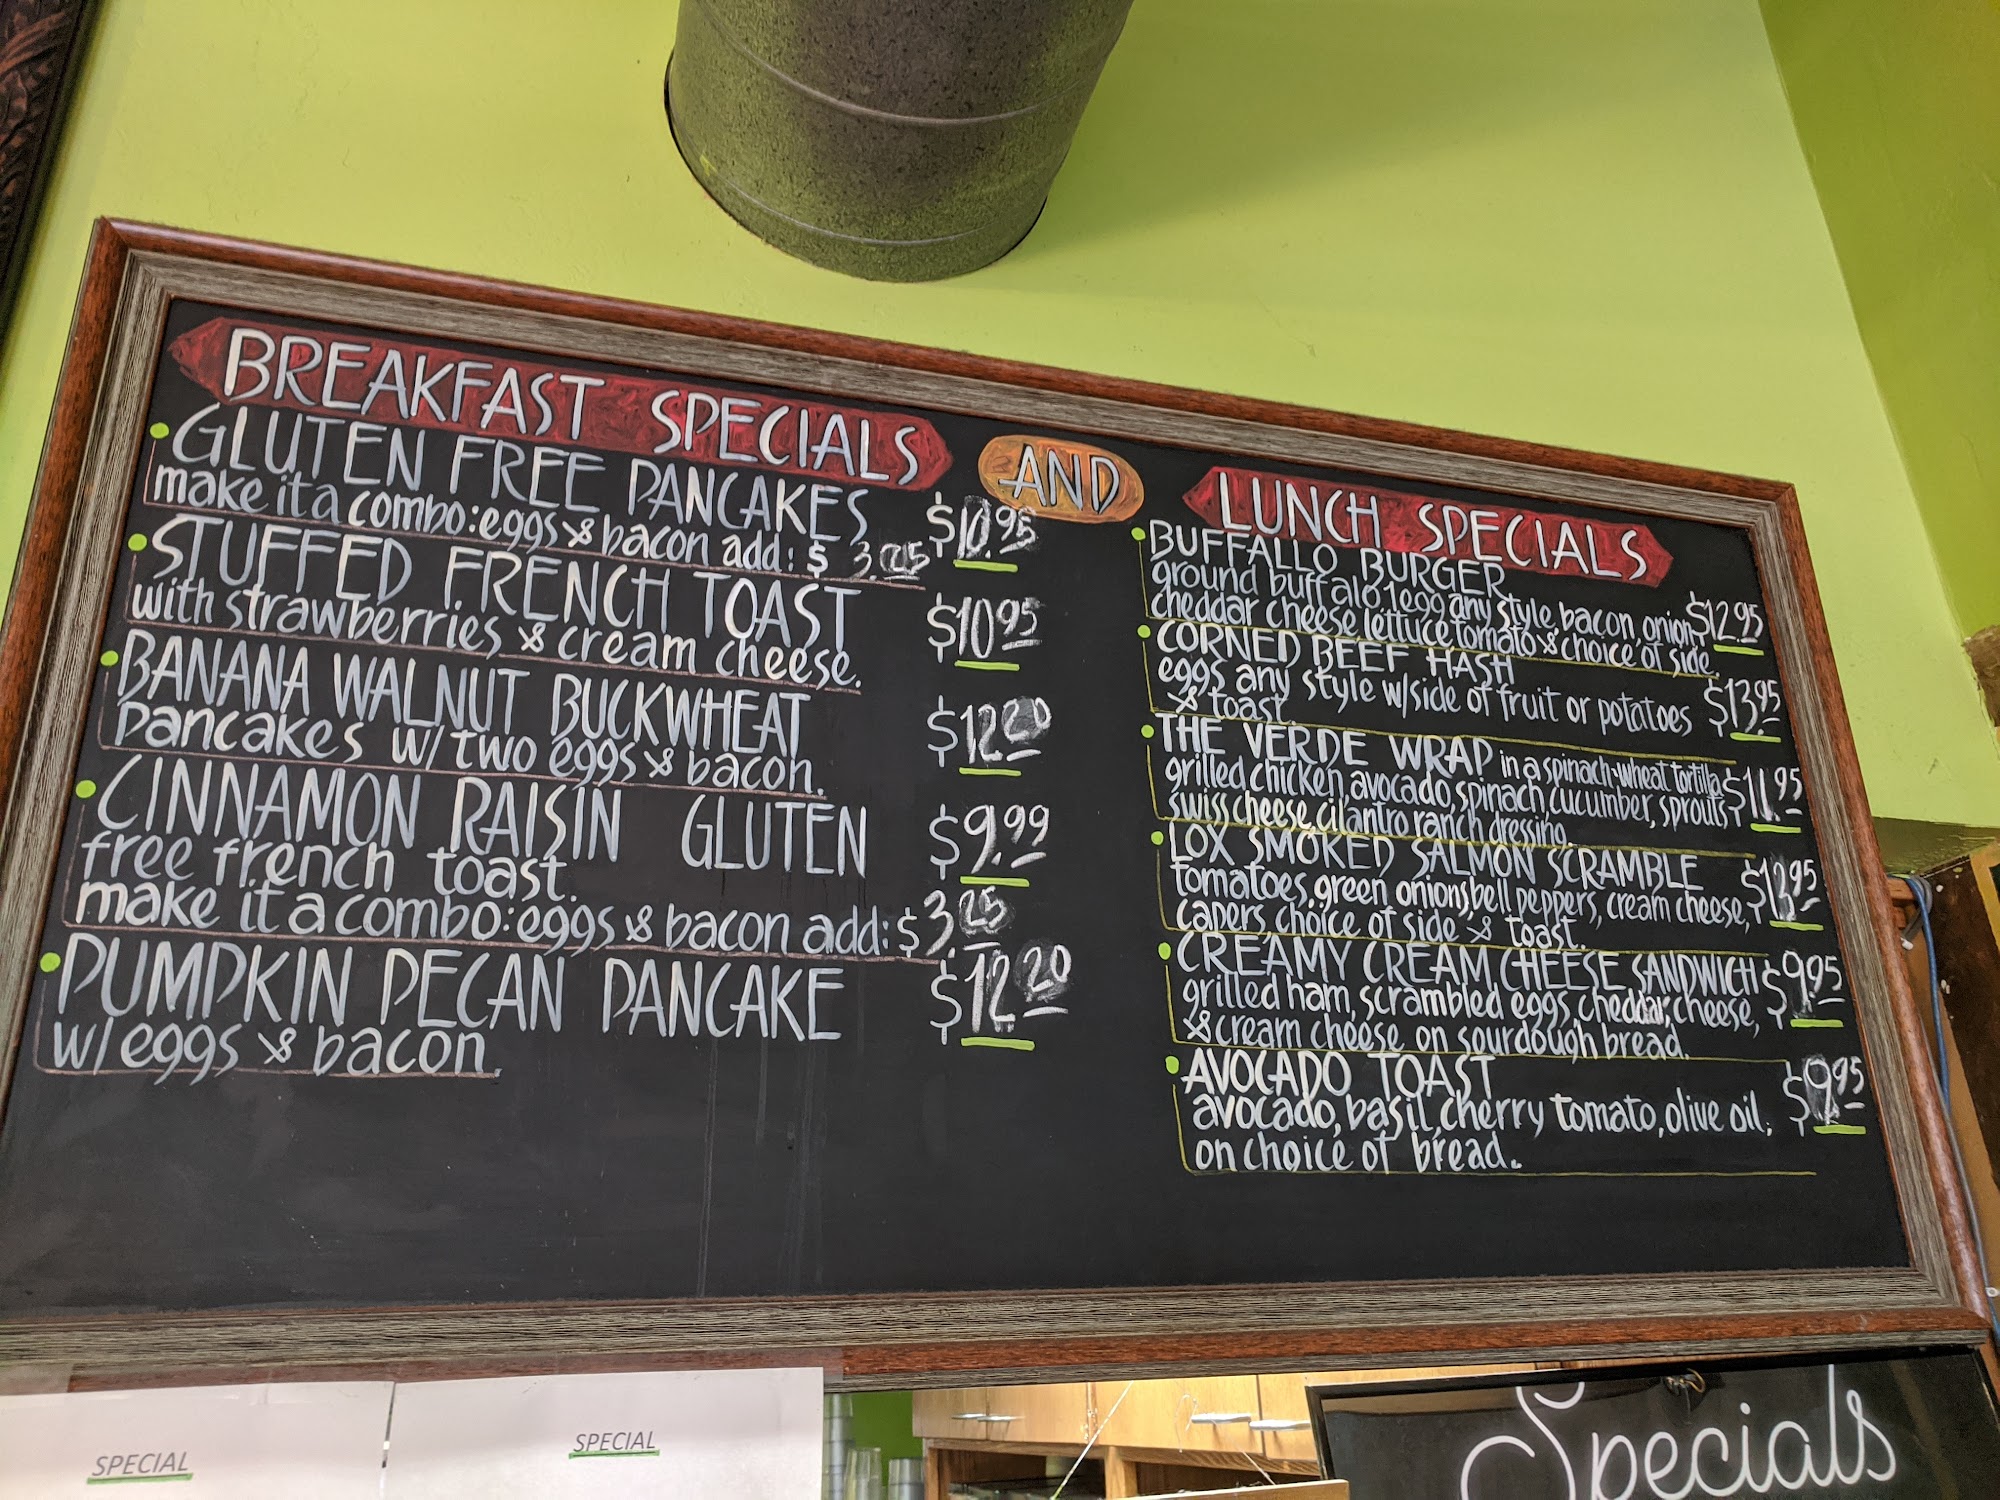 BREAKFAST SPECIALS
GLUTEN FREE PANCAKES $10.95
make it a combo: eggs & bacon add: $ 3.25
STUFFED FRENCH TOAST $10.95
with strawberries & cream cheese.
BANANA WALNUT BUCKWHEAT $12.20
pancakes w/ two eggs & bacon.
CINNAMON RAISIN GLUTEN $9.99
free french toast.
make it a combo: eggs & bacon add: $3.25
PUMPKIN PECAN PANCAKE $12.20
w/ eggs & bacon.
AND
LUNCH SPECIALS
BUFFALLO BURGER
ground buffalo 1 egg any style, bacon, onion, $12.95
cheddar cheese lettuce tomato & choice of side.
CORNED BEEF HASH
eggs any style w/side of fruit or potatoes $13.95
& toast.
THE VERDE WRAP in a spinach-wheat tortilla $11.95
grilled chicken, avocado, spinach cucumber, sprouts
swiss cheese, cilantro ranch dressing.
LOX SMOKED SALMON SCRAMBLE
tomatoes, green onions, bell peppers, cream cheese, $13.95
capers, choice of side & toast.
CREAMY CREAM CHEESE SANDWICH $9.95
grilled ham, scrambled eggs, cheddar, cheese,
& cream cheese on sourdough bread.
AVOCADO TOAST $9.95
avocado, basil, cherry tomato, olive oil,
on choice of bread.
SPECIAL
SPECIAL
Specials